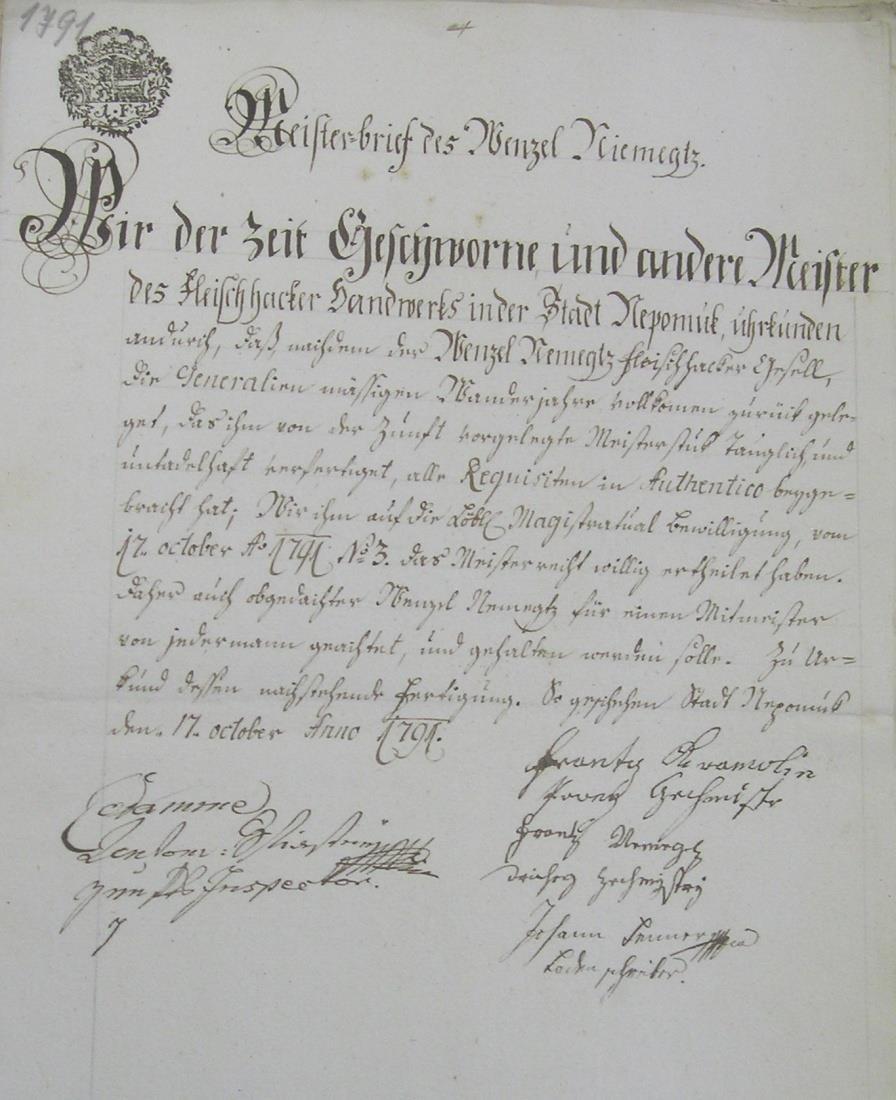 1791
Meister-brief des Wenzel Niemegtz.
Wir der Zeit Geschworne, und andere Meister
des Fleischhacker Handwerks in der Stadt Nepomuk, uhrkunden
andurch, daß nachdem der Wenzel Nemegtz Fleischhacker Gesell,
die Generalien mässigen Wanderjahre vollkomen zurück gele-
get, das ihm von der Zunft vorgelegte Meisterstük Tauglich, und
untadelhaft verfertiget, alle Requisiten in Authentico beyge=
bracht hat; Wir ihm auf die Löbl Magistratual Bewilligung, vom
17. october Ao 1791 No 3. das Meisterrecht willig ertheilet haben.
Daher auch obgedachter Wenzel Nemegtz für einen Mitmeister
von jedermann geachtet, und gehalten werden solle. Zu Ur=
kund dessen nachstehende Fertigung. So geschehen Stadt Nepomuk
den. 17. october Anno 1791.
Frantz
Prwey Zechmistr
Frantz Nemegtz
Druhey Zechmistrz
Johann
Laden schreiber.
Inspector.